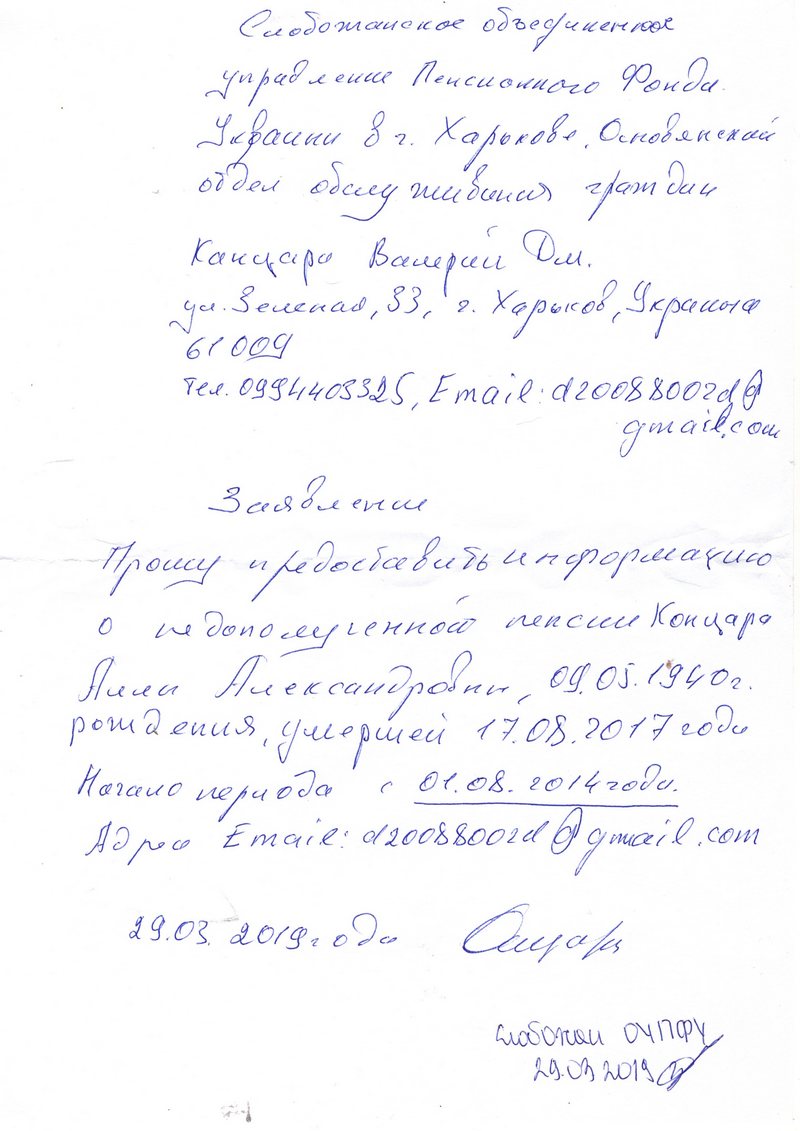 Слобожанское объединенное
управление Пенсионного Фонда
Украины в г. Харькове, Основянский
отдел обслуживания граждан
Канцара Валерий Дм.
ул. Зеленая, 33, г. Харьков, Украина
61009
тел. 0994403325, Email: d20088002d@
gmail.com
Заявление
Прошу предоставить информацию
о недополученной пенсии Канцара
Аллы Александровны, 09.05.1940г.
рождения, умершей 17.08.2017 года
Начало периода с 01.08.2014 года.
Адрес Email: d20088002d@gmail.com
29.03.2019 года
ОУПФУ
29.03 2019